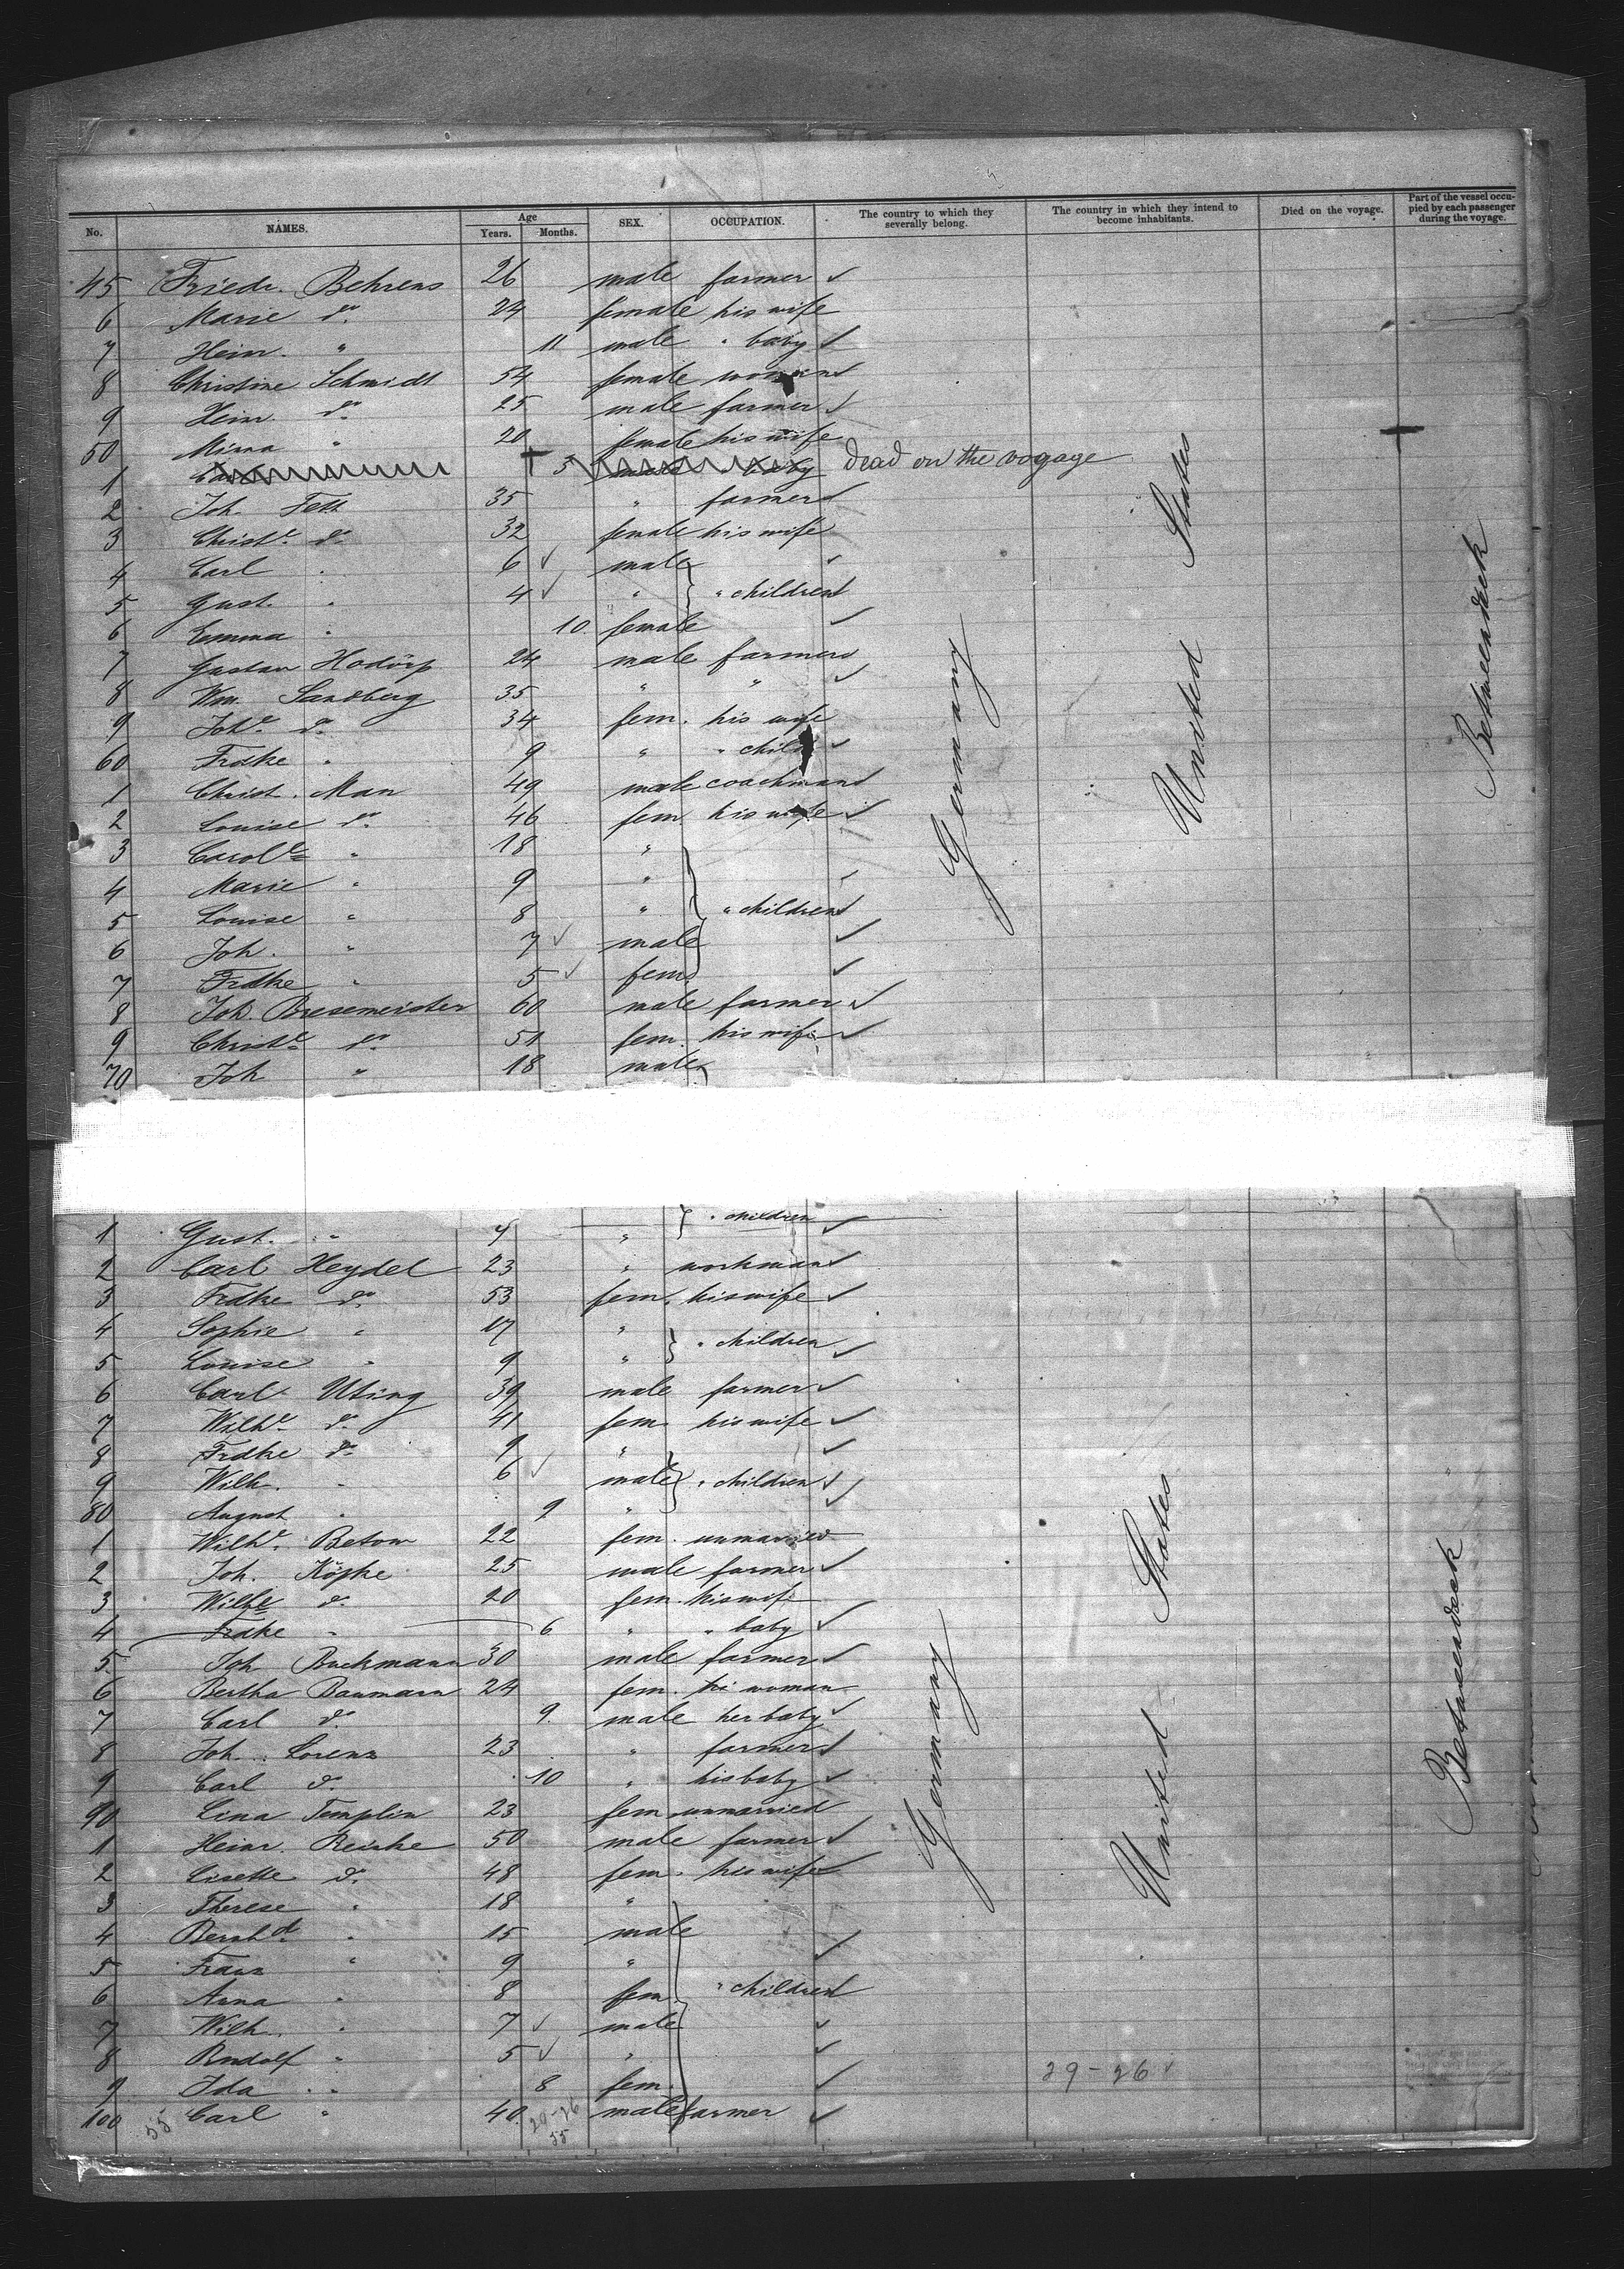 No. NAMES. Age Years. Months. SEX. OCCUPATION. The country to which they severally belong. The country in which they intend to become inhabitants. Died on the voyage. Part of the vessel occupied by each passenger during the voyage.
45 Friedr. Behrens 26 male farmer
6 Marie do. 24 female his wife
7 Heinr. " 11 male " baby
8 Christine Schmidt 54 female woman
9 Heinr. do. 25 male farmer
50 Minna " 20 female his wife
1 5 male " baby dead on the voyage
2 Joh. Fett 35 " farmer
3 Christe. do. 32 female his wife
4 Carl " 6 male
5 Gust. " 4 " " children
6 Emma " 10 female
7 Gustav Hodörp 24 male farmer
8 Wm. Sandberg 35 " "
9 Johe. do. 34 fem. his wife
60 Frdke " 9 " " child
1 Christ. Man 49 male coachman
2 Louise do. 46 fem. his wife
3 Carole " 18 "
4 Marie " 9 "
5 Louise " 8 " " children
6 Joh. " 7 male
7 Frdke " 5 fem.
8 Joh. Bresemeister 60 male farmer
9 Christe do. 51 fem. his wife
70 Joh " 18 male
Germany
United States
Betweendeck
1 Gust. " 4 " " children
2 Carl Heydel 23 " workman
3 Frdke do. 53 fem. his wife
4 Sophie " 17 "
5 Louise " 9 " " children
6 Carl Uting 39 male farmer
7 Wilhe. do. 41 fem his wife
8 Frdke do. 9 "
9 Wilh. " 6 male " children
80 August " 9 "
1 Wilhe. Betow 22 fem. unmarried
2 Joh. Köpke 25 male farmer
3 Wilhe do. 20 fem. his wife
4 Frdke " 6 " " baby
5 Joh Buckmann 30 male farmer
6 Bertha Baumann 24 fem. woman
7 Carl do. 9. male her baby
8 Joh. Lorenz 23 " farmer
9 Carl do. 10 " his baby
90 Lina Templin 23 fem. unmarried
1 Heinr. Reinke 50 male farmer
2 Lisette do. 48 fem. his wife
3 Therese " 18 "
4 Bernhd. " 15 male
5 Franz " 9 "
6 Anna " 8 fem. " children
7 Wilh. " 7 male
8 Rudolf " 5 "
9 Ida " 8 fem.
100 Carl " 40 male farmer
Germany
United States
Betweendeck
29-26
55
29-26
55